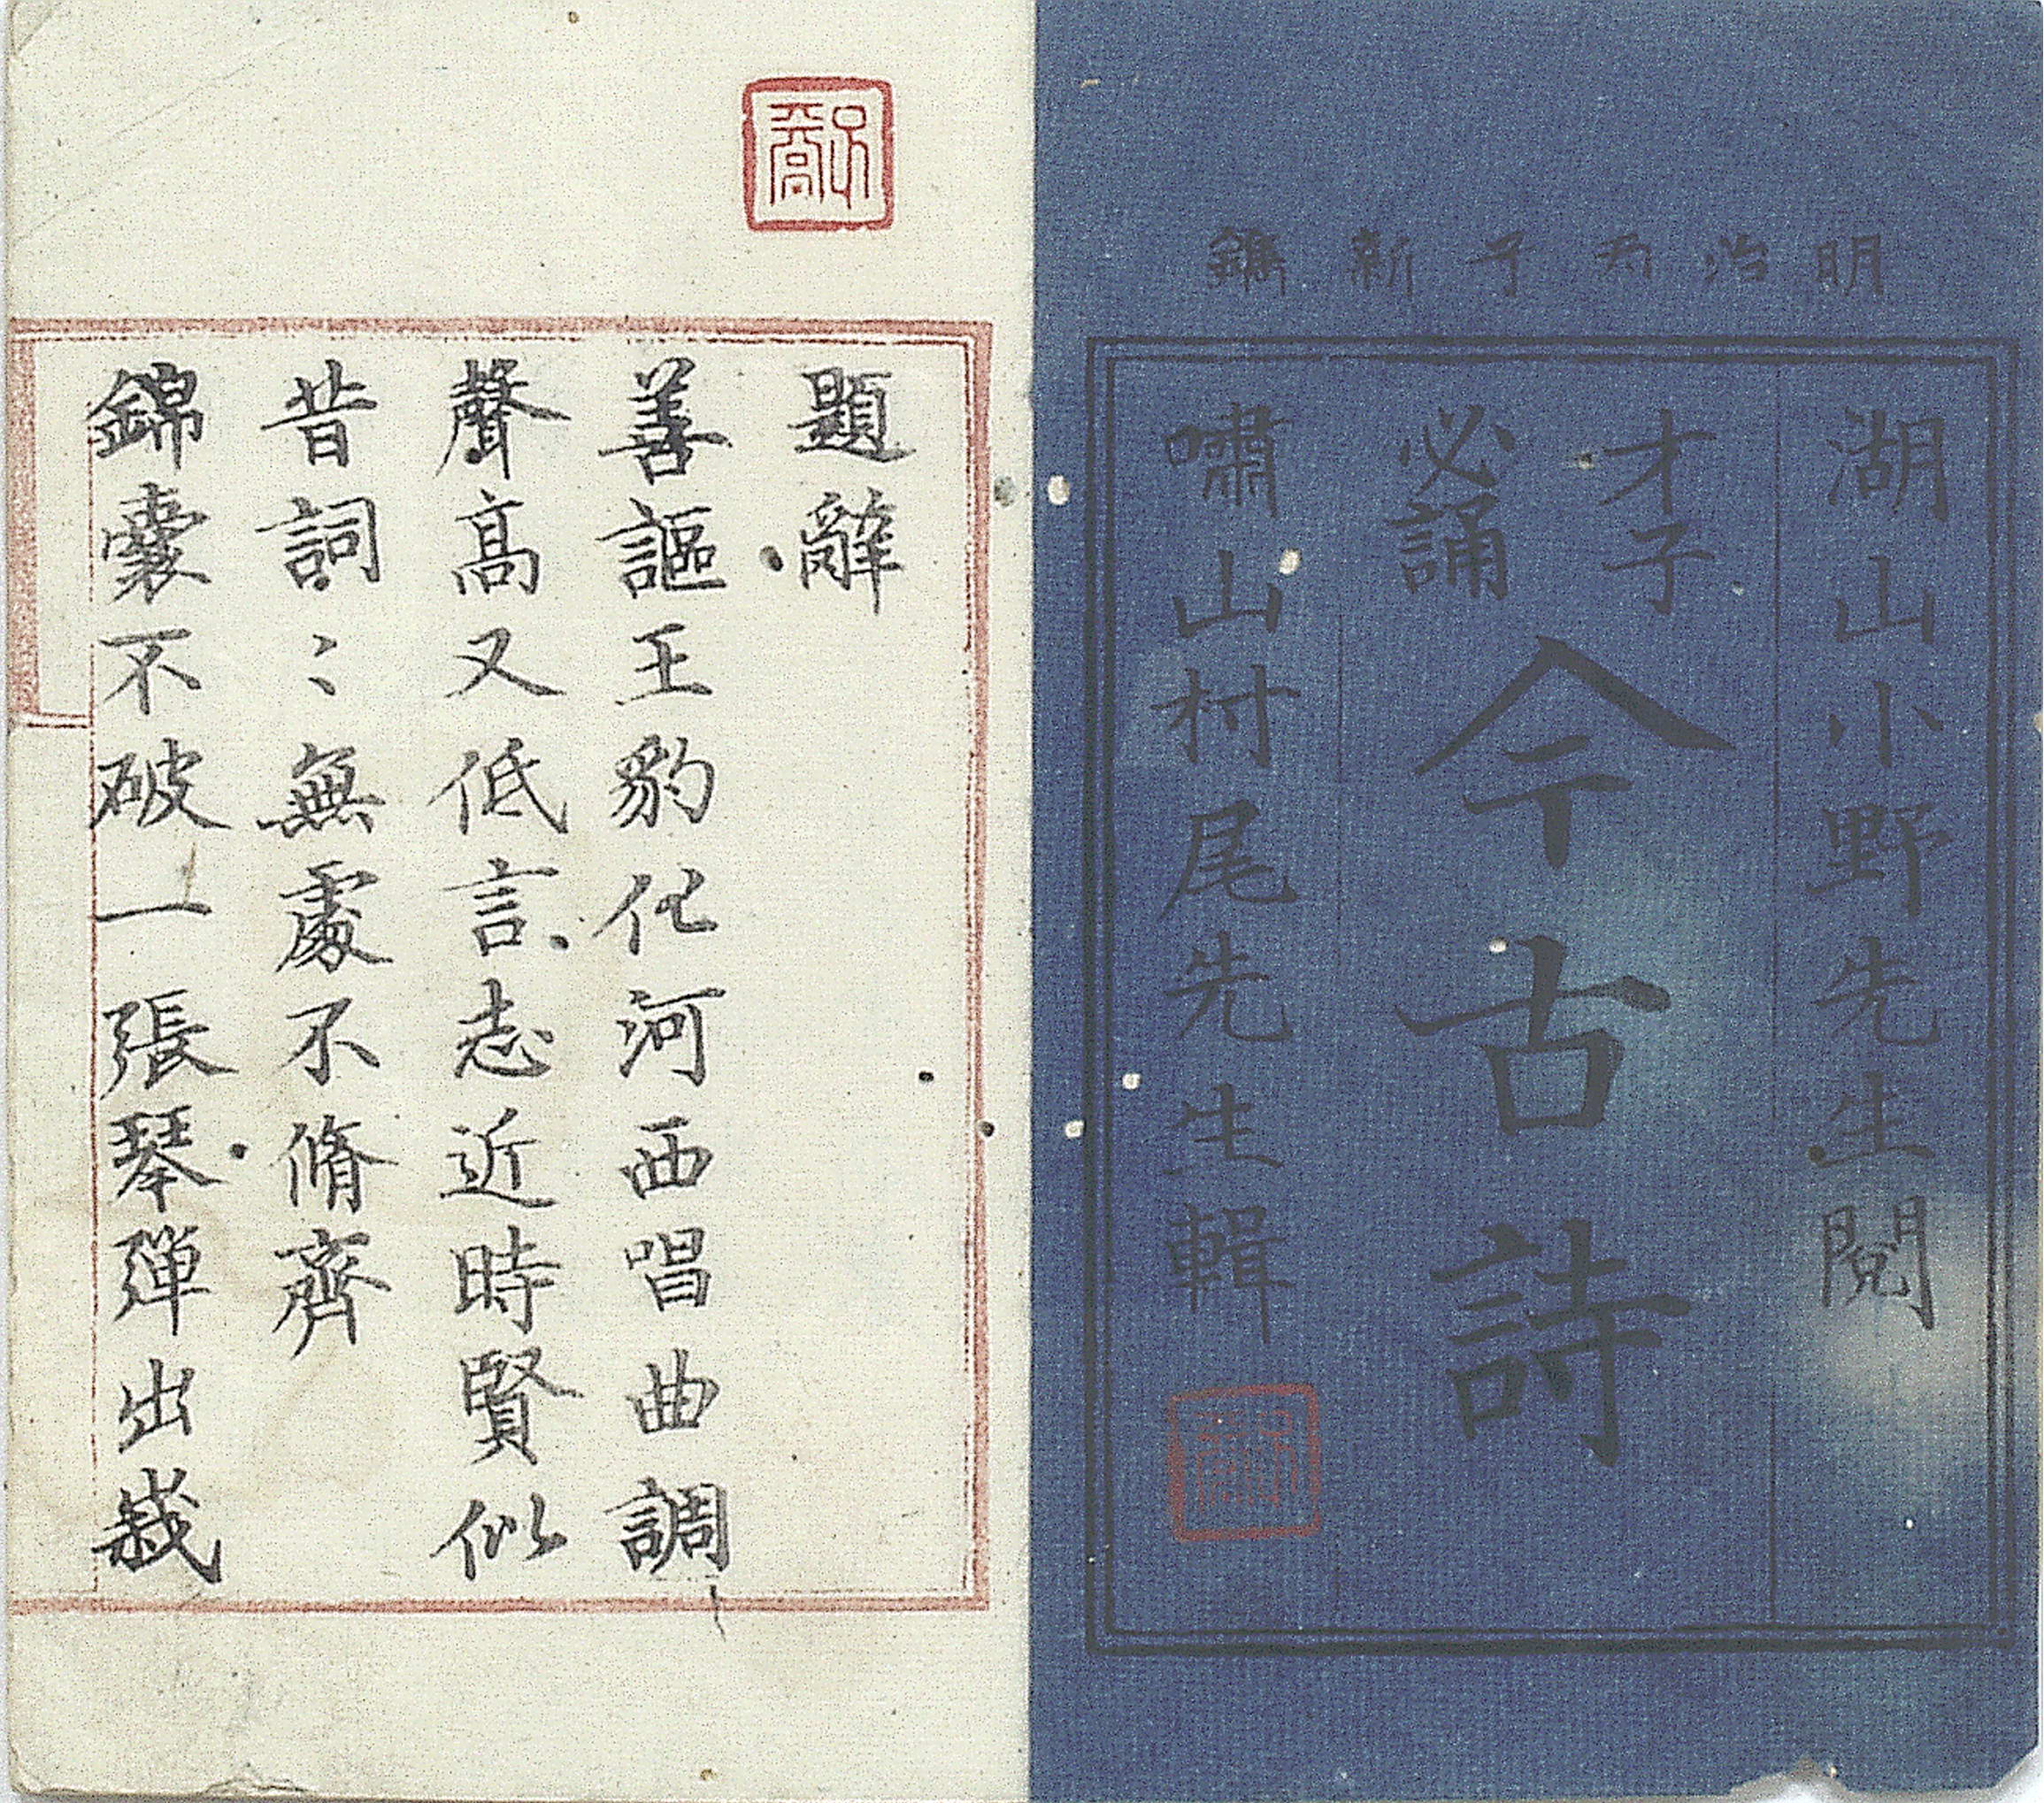 明治丙子新鐫
湖山小野先生閱
才子
必誦
今古詩
嘯山村尾先生輯
題辭
善謳王豹化河西唱曲調
聲高又低言志近時賢似
昔詞〻無處不脩齊
錦囊不破一張琴彈出幾